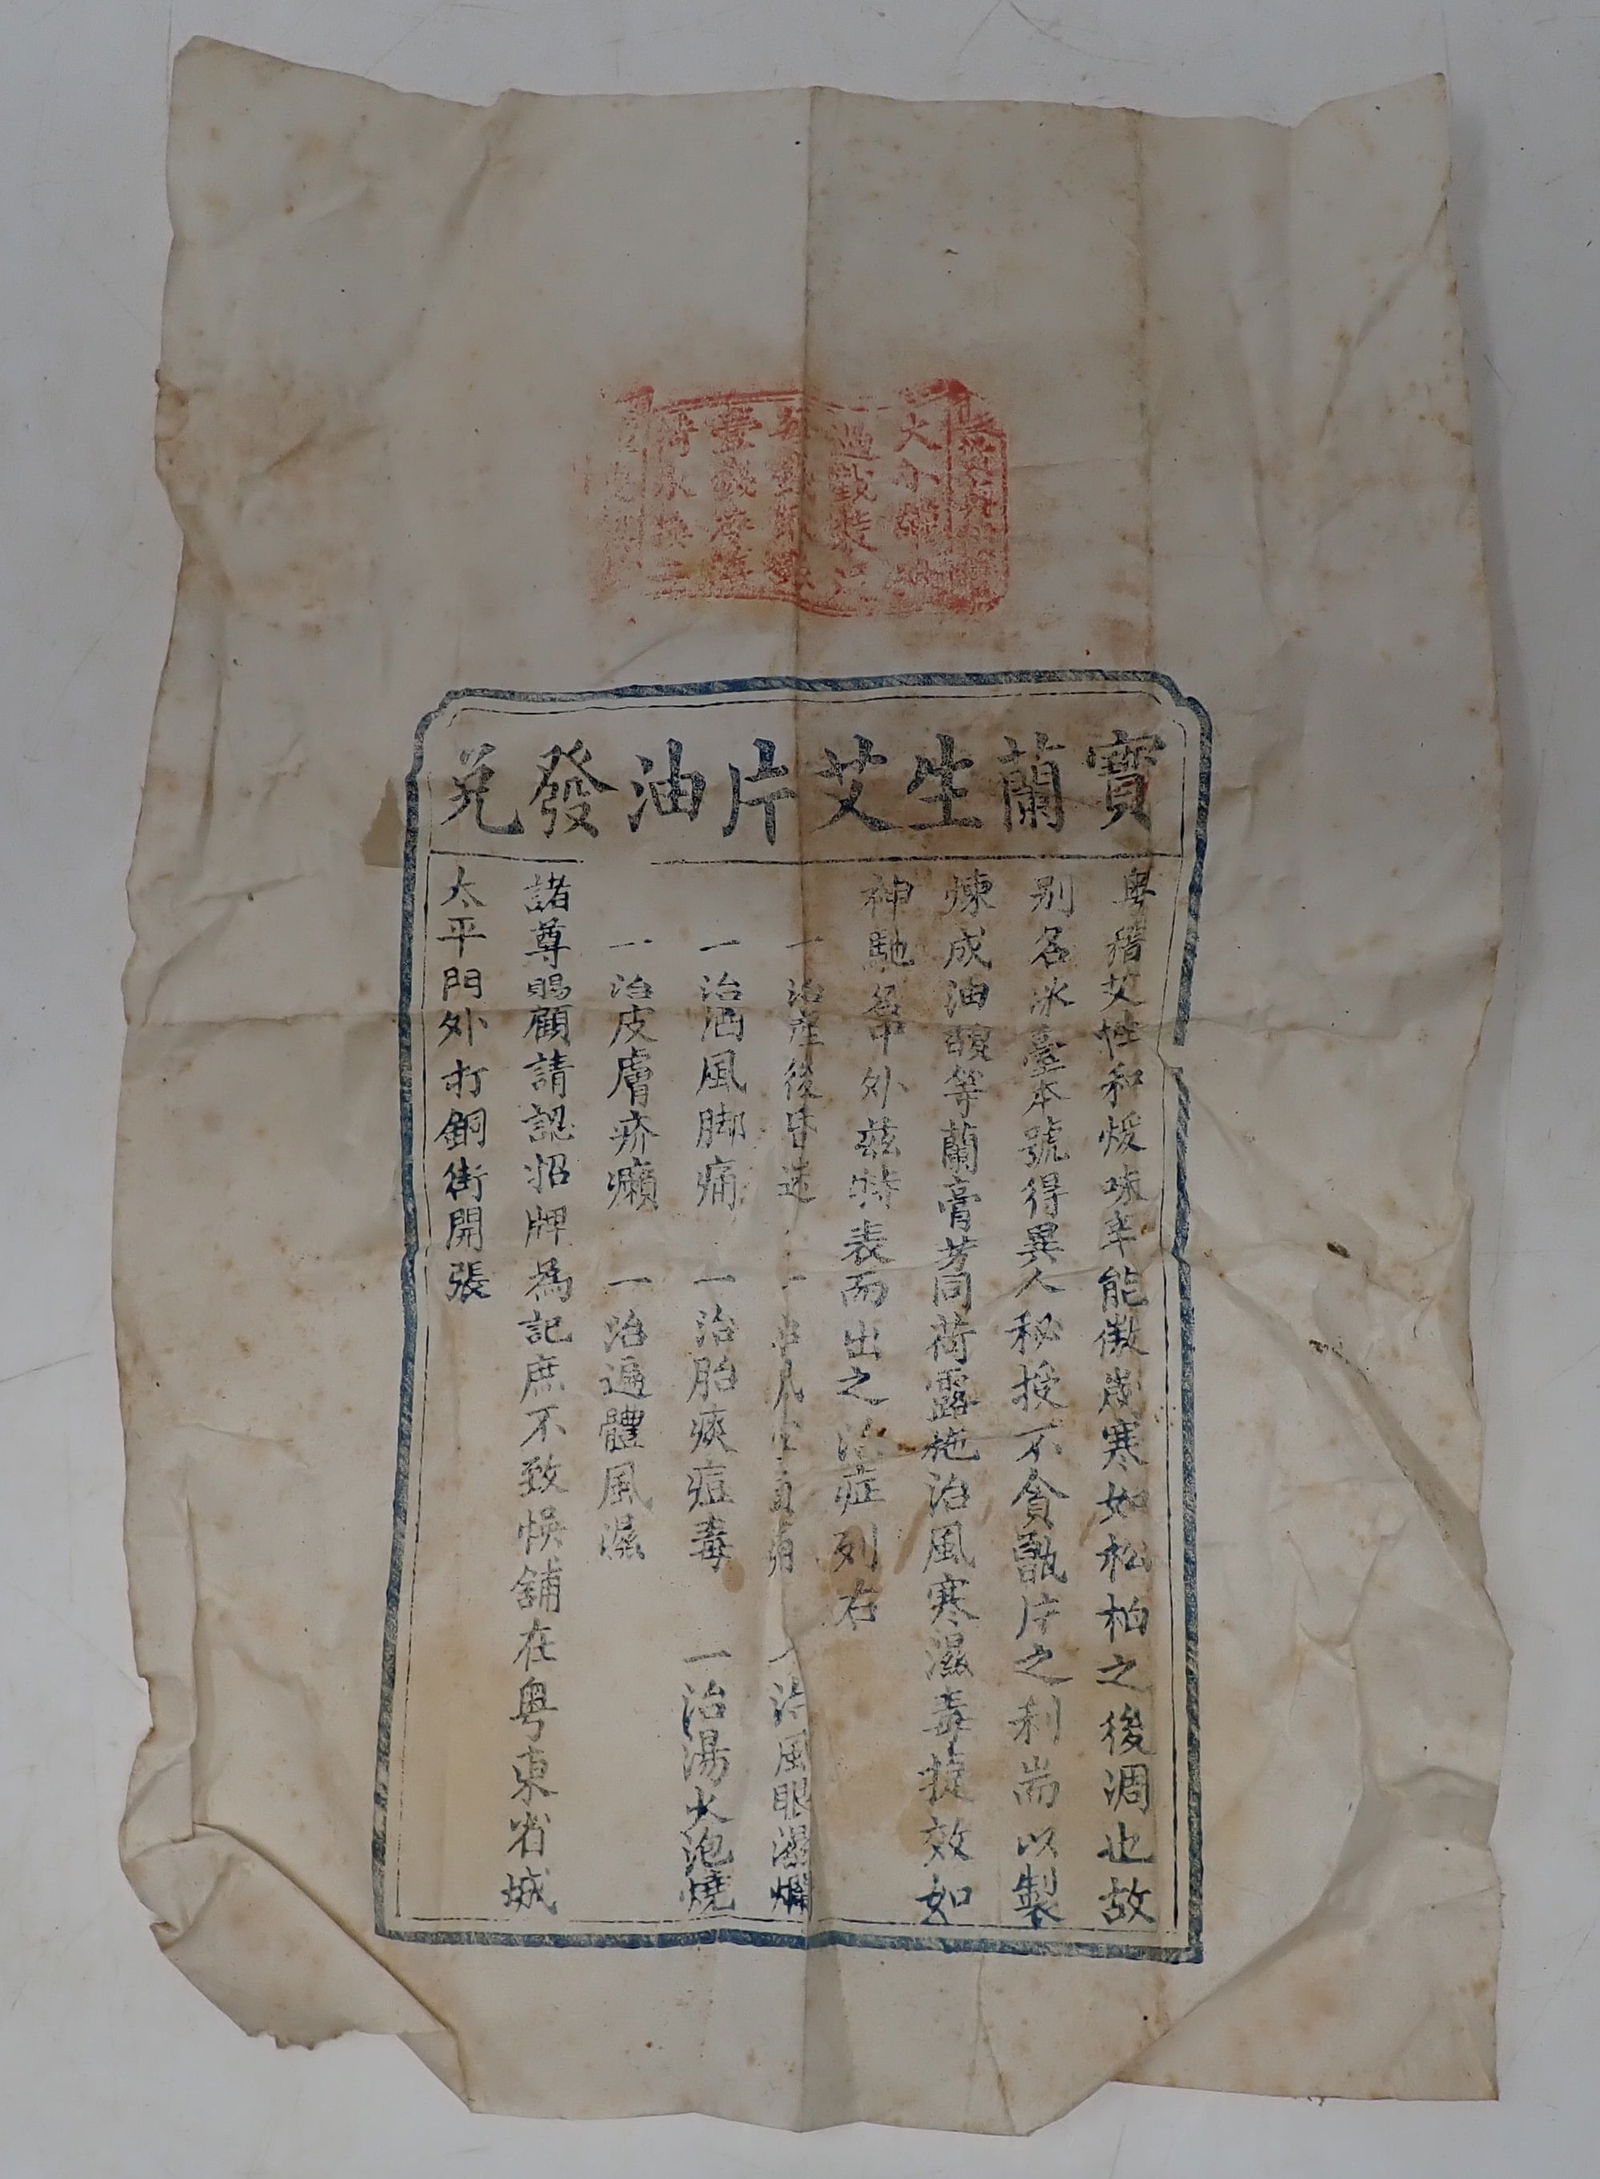 大小
過戥裝
壹錢
寶蘭生艾片油發兌
粵稽艾性和煖味辛能傲歲寒如松柏之後凋也故
別名冰臺本號得異人秘授不貪甑片之利耑以製
煉成油馥等蘭膏芳同荷露施治風寒濕毒捷效如
神馳名中外茲特表而出之治症列右
一治產後昏迷
一治風眼濕爛
一治酒風脚痛 一治胎痰痘毒 一治湯火泡燒
一治皮膚疥癩 一治遍體風濕
諸尊賜顧請認招牌為記庶不致悞舖在粵東省城
太平門外打銅街開張